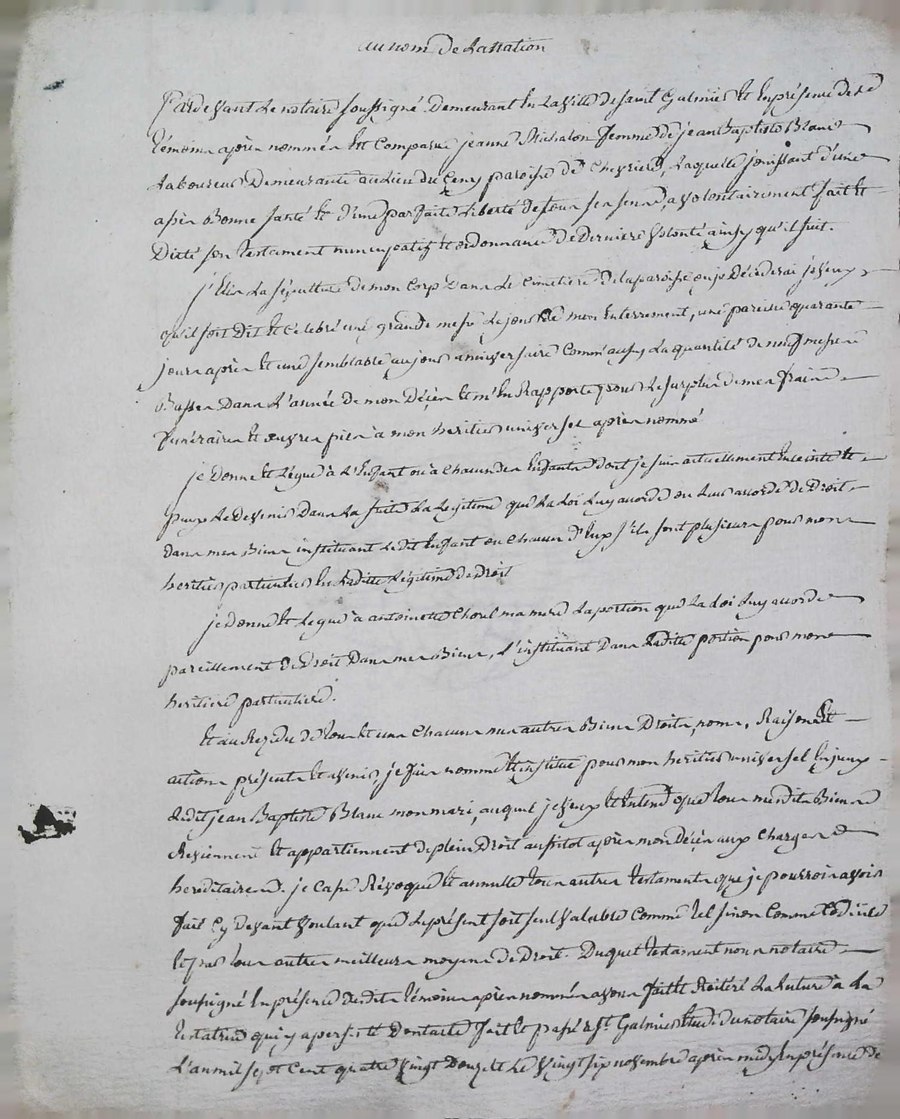 au nom de La nation
Pardevant Le notaire soussigné Demeurant En La Ville de saint Galmier Et En présence de sd
témoins après nommés Est Comparue jeanne Michalon femme de jean Baptiste Blanc
Laboureur Demeurante au Lieu du paroisse de Chevrieres, Laquelle jouissant d'une
assés Bonne santé Et d'une parfaite Liberté de tous ses sens, a volontairement fait Et
Dicté son testament nuncupatif Et ordonnance de Derniere volonté ainsy qu'il suit.
j'Elis La sépulture de mon Corps Dans Le Cimetiere de La paroisse ou je Décéderai je veux
qu'il soit Dit Et Célébré une grande messe Le jour de mon Enterrement, une pareille quarante
jours après Et une semblable au jour anniversaire Comm'aussy La quantité de neuf messes
Basses Dans L'année de mon Décès Et m'En Rapporte pour Le surplus de mes frais
funéraires Et œuvres pies à mon heritier universel après nommé
je Donne Et Legue à L'Enfant ou à chacun des Enfants dont je suis actuellement Enceinte Et
puis Le Devenir Dans La suite La Legitime que La Loi Luy accorde ou Leur accorde de Droit
dans mes Biens instituant Ledit Enfant ou Chacun d'Eux s'ils sont plusieurs pour mon
heritier particulier En Laditte Légitime de Droit
je donne Et Legue à antoinette Choul ma mere La portion que La Loi Luy accorde
pareillement de Droit Dans mes Biens, L'instituant Dans Laditte portion pour mon
heritiere particuliere.
Et au Rezidu de tous Et uns Chacuns mes autres Biens Droits, noms, Raisons Et
actions présents Et avenir, je fais nomme Et institue pour mon heritier universel
Ledit jean Baptiste Blanc mon mari, auquel je veux Et Entend que tous mesdits Biens
Reviennent Et appartiennent de plein Droit aussitot après mon Décès aux Charges
hereditaires. je Casse Révoque Et annulle tous autres testaments que je pourrois avoir
fait Cy Devant voulant que Le présent soit seul valable Comme tel sinon Comme Codicile
Et par tous autres meilleurs moyens de Droit. Duquel testament nous notaire
soussigné En présence desdits témoins après nommés avons fait Et Réitéré La Lecture à La
testatrice qui y a persisté Dont acte fait Et passé à St. Galmier Etude du notaire soussigné
L'an mil sept Cent quatre vingt Douze Et Le vingt six novembre après midy En présence de